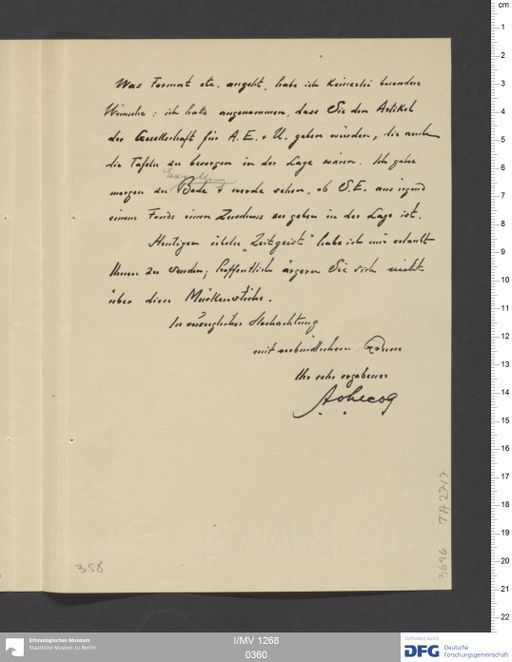 Was Format etc. angeht, habe ich keinerlei besondere
Wünsche: ich hatte angenommen, dass Sie den Artikel
der Gesellschaft für A. E. + U. geben würden, die auch
die Tafeln zu besorgen in der Lage wären. Ich gehe
morgen zu Bode + werde sehen, ob S.E. aus irgend
einem Fonds einen Zuschuss zu geben in der Lage ist.
Heutigen "Zeitgeist" habe ich mir erlaubt
Ihnen zu senden; hoffentlich ärgern Sie sich nicht
über diese Mückenstiche.
In vorzüglicher Hochachtung
mit verbindlichem Grusse
Ihr sehr ergebener
358
3696 TA 2717
cm
1
2
3
4
5
6
7
8
9
10
11
12
13
14
15
16
17
18
19
20
21
22
Ethnologisches Museum
Staatliche Museen zu Berlin
I/MV 1268
0360
Gefördert durch
DFG Deutsche
Forschungsgemeinschaft